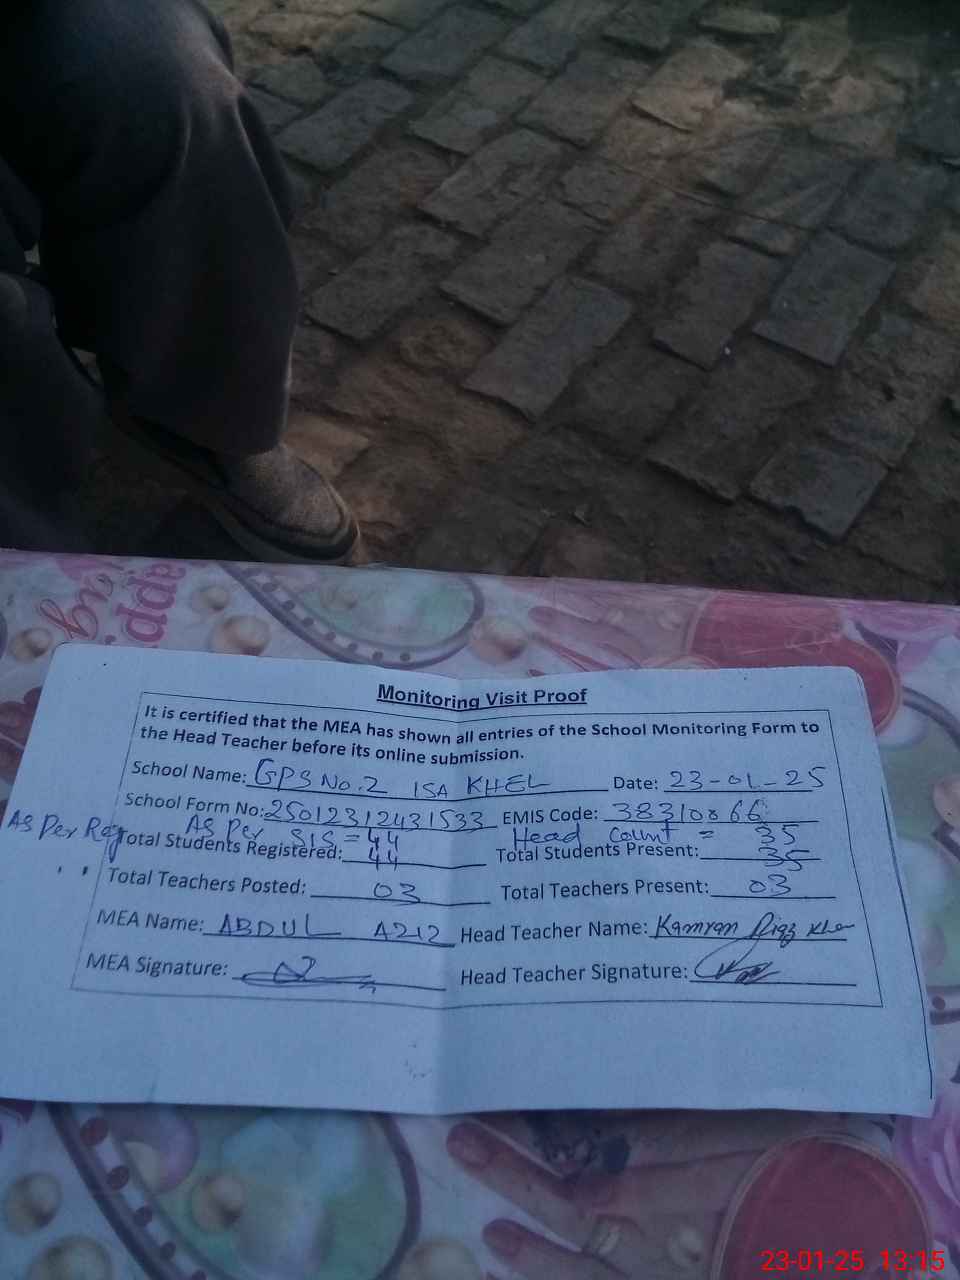 Monitoring Visit Proof
It is certified that the MEA has shown all entries of the School Monitoring Form to
the Head Teacher before its online submission.
School Name: GPS No.2 ISA KHEL Date: 23-01-25
School Form No: 25012312431533 EMIS Code: 38310066
As Per SIS = 44 Head Count = 35
As Per Reg Total Students Registered: 44 Total Students Present: 35
Total Teachers Posted: 03 Total Teachers Present: 03
MEA Name: ABDUL AZIZ Head Teacher Name: Kamran Riaz Khan
MEA Signature: Head Teacher Signature:
23-01-25 13:15